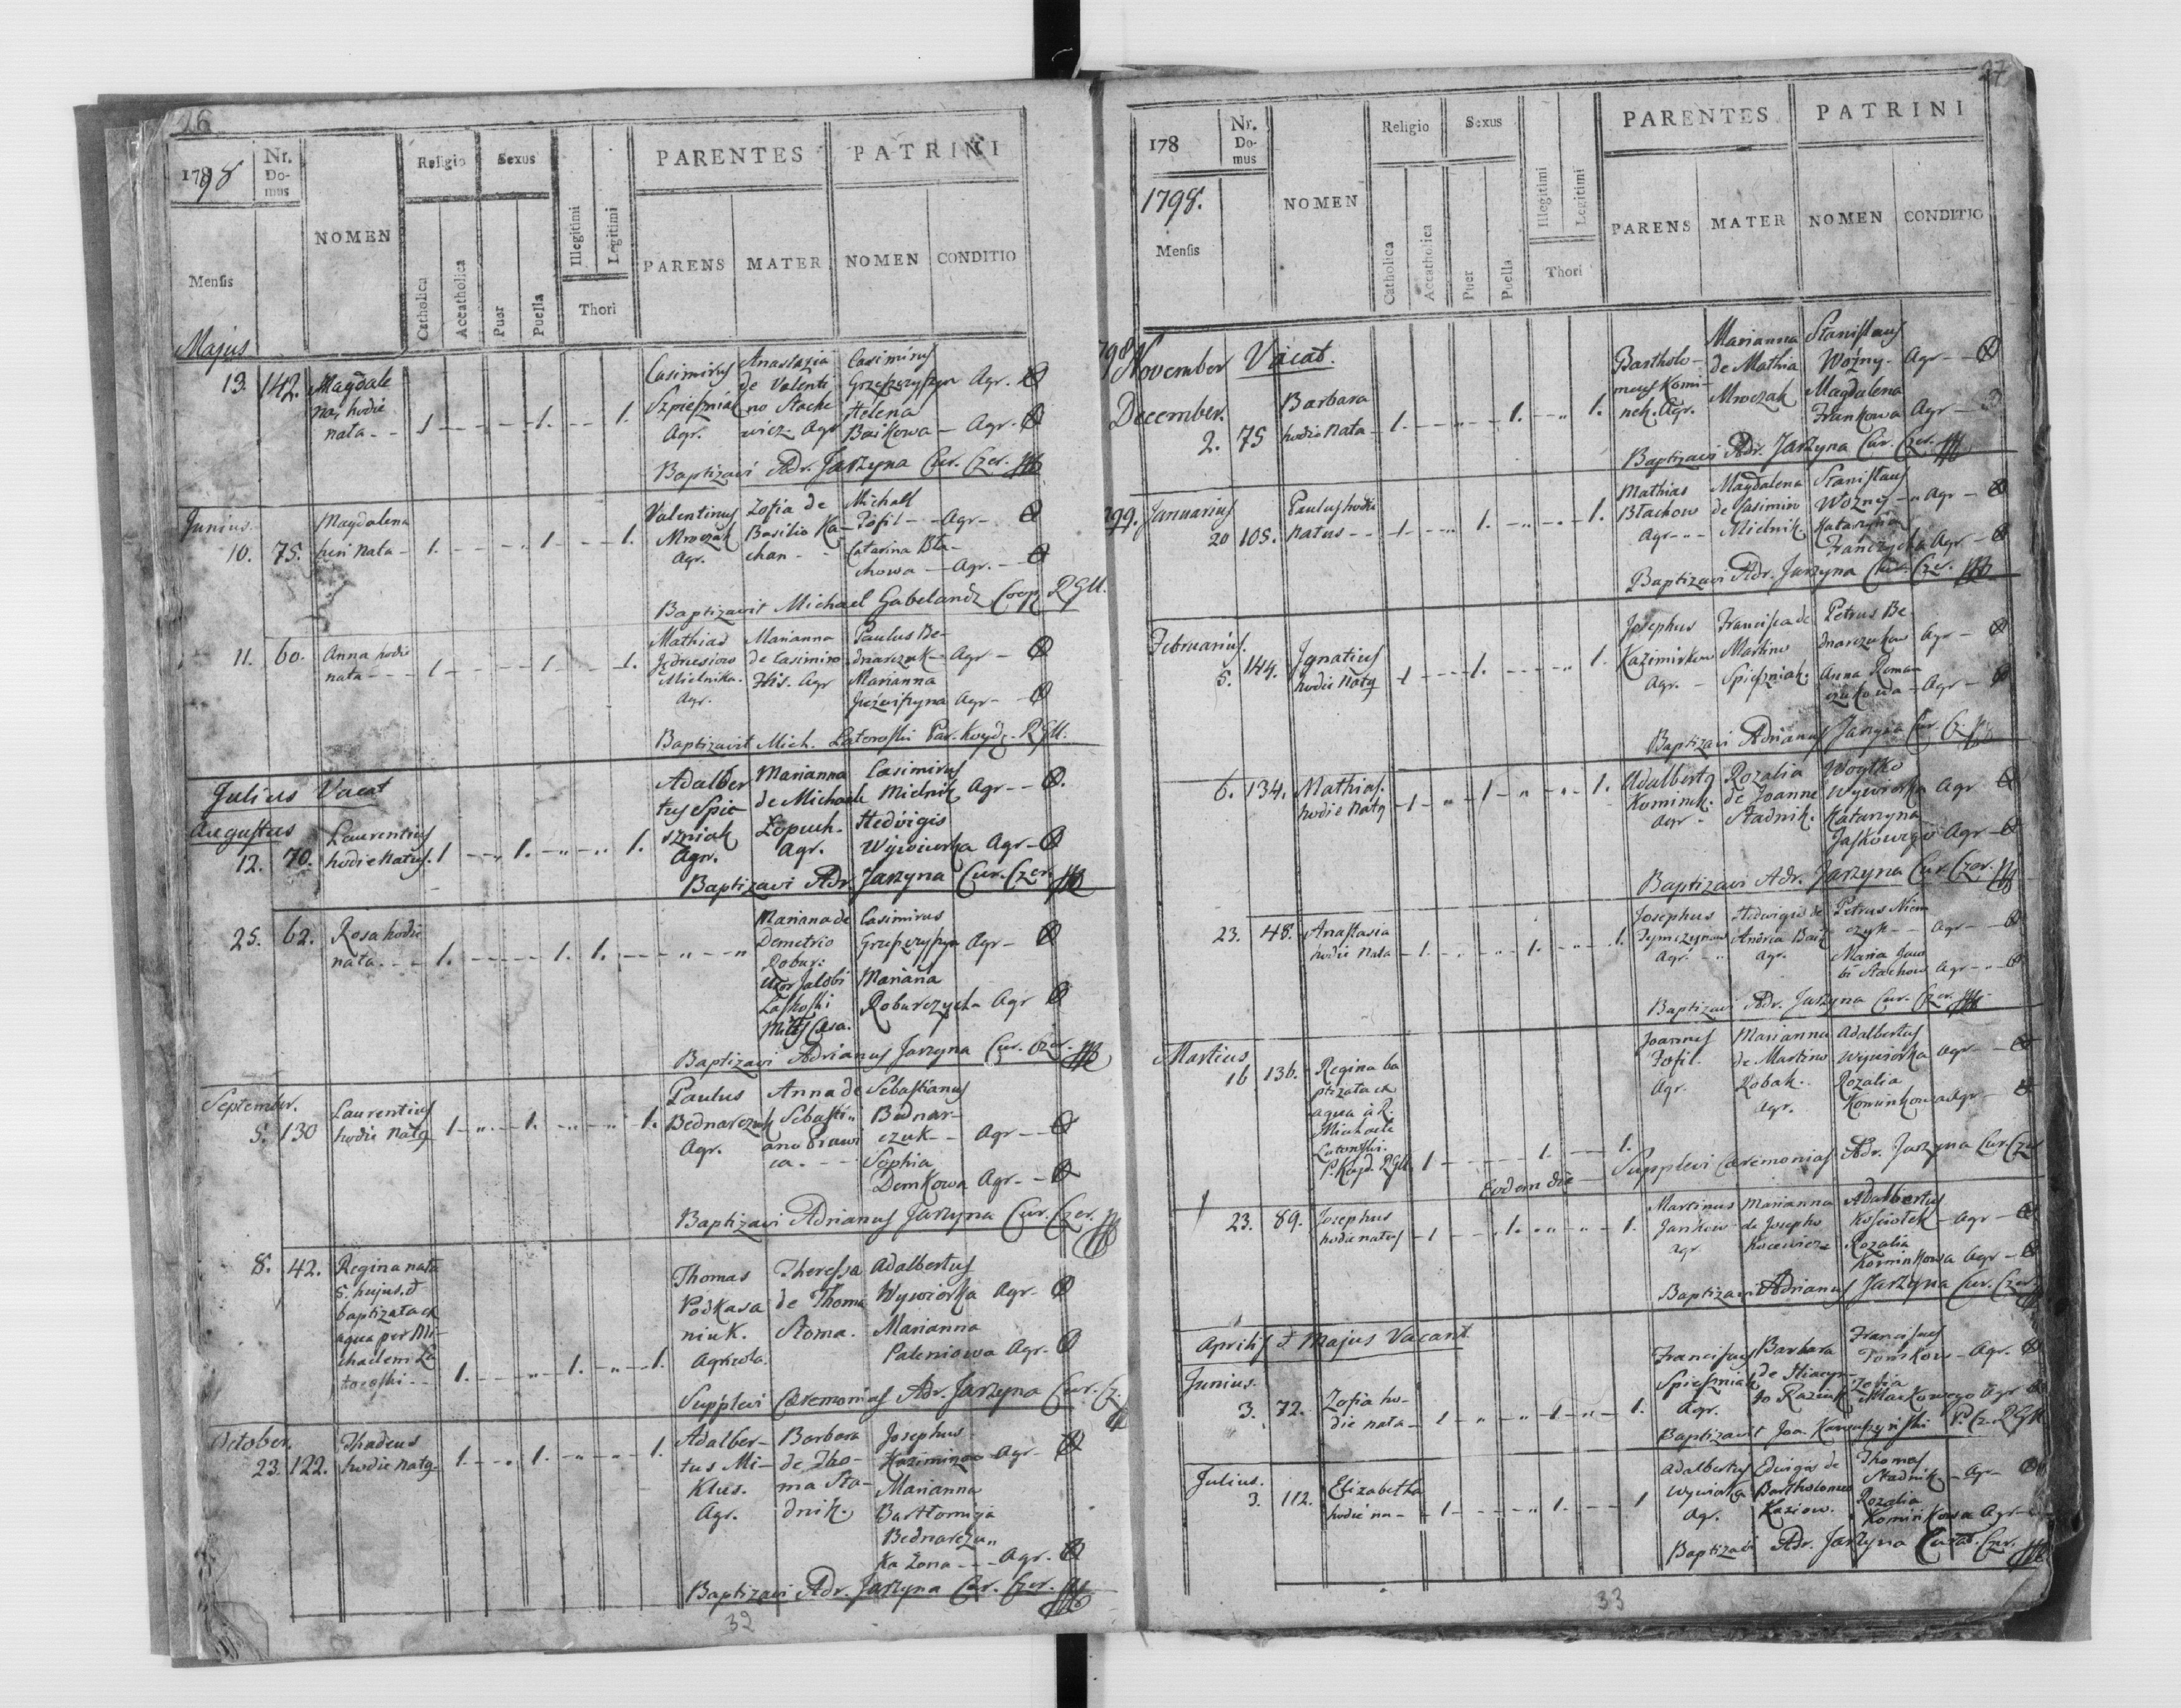 26
1798
Nr. Domus
NOMEN
Religio
Sexus
Illegitimi
Legitimi
PARENTES
PATRINI
Mensis
Catholica
Accatholica
Puer
Puella
Thori
PARENS
MATER
NOMEN
CONDITIO
Majus
13. 142. Magdale
na, hodie
nata - - 1 1. 1.
Casimirus
Szpieśniak
Agr.
Anastazia
de Valenti
no Stache
wicz. Agr
Casimirus
Grzeszczyszyn Agr.
Helena
Baikowa - Agr.
Baptizavi Adr. Jarzyna Cur. Czer.
Junius
10. 75. Magdalena
heri nata - 1. 1 1.
Valentinus
Mroczak
Agr.
Zofia de
Basilio Ka-
chan - -
Michall
Pofil - - Agr -
Catarina Bła-
chowa - Agr. -
Baptizavit Michael Gabelandz Coop. RGM.
11. 60. Anna hodie
nata - - - 1 1 1.
Mathias
Jędrusiow
Mielnika.
Agr.
Marianna
de Casimiro
His. Agr
Paulus Be-
dnarczuk - Agr -
Marianna
Agr -
Baptizavit Mich. Latoroski Par. RGM.
Julius Vacat
Augustus
12. 70. Laurentius
hodie natus. 1 1. 1.
Adalber
tus Spie
szniak
Agr.
Marianna
de Michaele
Łopuch.
Agr.
Casimirus
Mielnik Agr - -
Hedvigis
Wywiurka Agr -
Baptizavi Adr. Jarzyna Cur. Czer.
25. 62. Rosa hodie
nata - - 1. 1. 1.
Mariana de
Demetrio
Robur:
uxor Jacobi
Laskoski
Casimirus
Grzeszczyszyn Agr -
Mariana
Roburczycha Agr
Baptizavi Adrianus Jarzyna Cur. Czer.
September.
5. 130 Laurentius
hodie natq 1 1. 1.
Paulus
Bednarczuk
Agr.
Anna de
Sebasti-
Sebastianus
Bednar-
czuk - - Agr -
Sophia
Demkowa Agr -
Baptizavi Adrianus Jarzyna Cur. Czer.
8. 42. Regina nata
5. hujus, d
baptizata ex
aqua per Mi-
chaelem La
toroski - - 1. 1. 1.
Thomas
Podkasa
niuk.
Agricola.
Theressa
de Thoma
Stoma.
Adalbertus
Wywiorka Agr -
Marianna
Paleniowa Agr -
Supplevi Cæremonias Adr. Jarzyna Cur. Cz.
October.
23. 122. Thadeus
hodie natq 1. 1. 1.
Adalber-
tus Mi-
klus.
Agr.
Barbara
de Tho-
ma Sta-
dnik.
Josephus
Kazimirow Agr -
Marianna
Bartłomija
Bednarczu-
ka Żona - - Agr.
Baptizavi Adr. Jarzyna Cur. Czer.
32
27
178
1798.
Nr. Domus
NOMEN
Religio
Sexus
Illegitimi
Legitimi
PARENTES
PATRINI
Mensis
Catholica
Accatholica
Puer
Puella
Thori
PARENS
MATER
NOMEN
CONDITIO
798 November Vacat.
December.
2. 75 Barbara
hodie nata - 1. 1. 1.
Bartholo-
meus Komi-
nek. Agr.
Marianna
de Mathia
Mroczak
Stanislaus
Woźny - Agr -
Magdalena
Frankowa Agr -
Baptizavi Adr. Jarzyna Cur. Czer.
799. Januarius
20 105. Paulus hodie
natus - - 1 1. 1.
Mathias
Błachow
Agr - -
Magdalena
de Casimiro
Mielnik
Stanislaus
Wozny - Agr -
Katarzyna
Agr -
Baptizavi Adr. Jarzyna Cur. Czer.
Februarius.
5. 144. Ignatius
hodie natq 1 1. 1.
Josephus
Kazimirkow
Agr. -
Francisca de
Martino
Spieszniak.
Petrus Be
dnarczukow Agr -
Anna Roman
czukowa - Agr -
Baptizavi Adrianus Jarzyna Cur. Cz.
6. 134. Mathias.
hodie natq 1 1 1.
Adalbertq
Kominek.
Agr -
Rozalia
de Joanne
Stadnik.
Woytko
Wywiorka Agr
Katarzyna
Jaskowego Agr -
Baptizavi Adr. Jarzyna Cur. Czer.
23. 48. Anastasia
hodie nata - 1. 1. 1.
Josephus
Agr. -
Hedwigis de
Andrea
Agr.
Petrus Niem
czyk - - Agr -
Maria Jaco
bi Stachow Agr -
Baptizavi Adr. Jarzyna Cur. Czer.
Martius
16 136. Regina ba
ptizata ex
aqua à R.
Michaele
Latoroski.
1 1. 1.
Joannes
Pofil.
Agr.
Marianna
de Martino
Robak.
Agr.
Adalbertus
Wywiorka Agr -
Rozalia
Kominkowa Agr -
Eodem die Supplevi Cæremonias Adr. Jarzyna Cur. Czer
23. 89. Josephus
hodie natus - 1 1. 1.
Martinus
Jankow
Agr.
Marianna
de Josepho
Adalbertus
Kosciołek - Agr -
Rozalia
Kominkowa Agr -
Baptizavi Adrianus Jarzyna Cur. Czer.
Aprilis & Majus Vacant
Junius.
3. 72. Zofia ho-
die nata - 1 1 1.
Franciscus
Spieszniak
Agr.
Barbara
de Hiacyn-
to
Franciscus
Tomkow - Agr.
Zofia
Maćkowego Agr
Baptizavit Joa.
Julius.
3. 112. Elizabetha
hodie na - 1 1. 1
Adalbertus
Wywiorka
Agr.
Edvigis de
Bartholomeo
Kaziow.
Thomas
Stadnik - Agr -
Rozalia
Kominkowa Agr -
Baptizavi Adr. Jarzyna Curat. Czer.
33